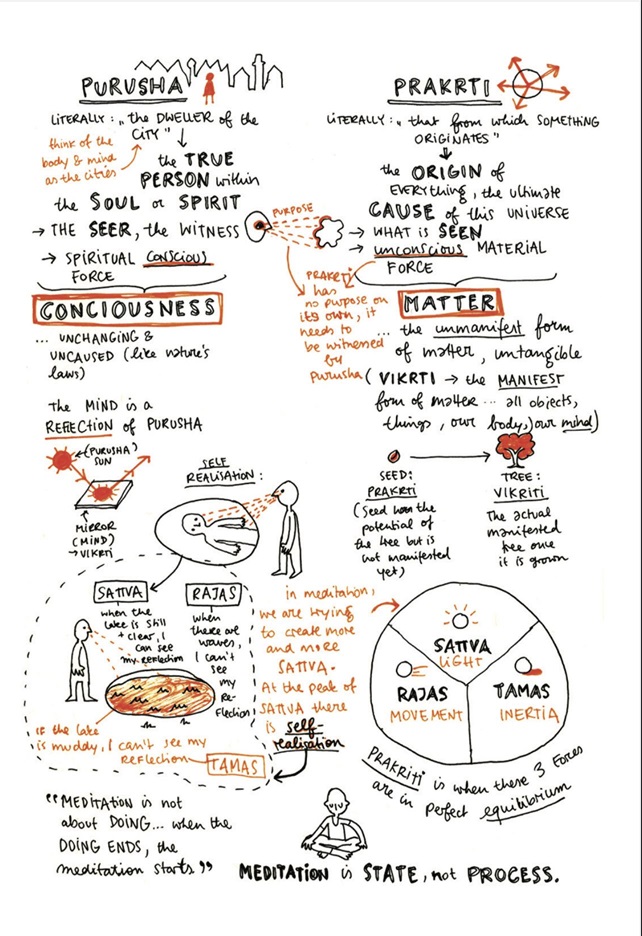 PURUSHA
LITERALLY: „the DWELLER of the
CITY"
think of the
body & mind
as the cities
the TRUE
PERSON within
the SOUL or SPIRIT
→ THE SEER, the WITNESS
→ SPIRITUAL CONSCIOUS
FORCE
CONCIOUSNESS
... UNCHANGING &
UNCAUSED (like nature's
laws)
PURPOSE
PRAKRTI
has
no purpose on
its own, it
needs to
be witnessed
by
Purusha
PRAKRTI
LITERALLY: „that from which SOMETHING
ORIGINATES"
the ORIGIN of
EVERYthing, the ultimate
CAUSE of this UNIVERSE
→ WHAT is SEEN
→ unconscious MATERIAL
FORCE
MATTER
... the unmanifest form
of matter, untangible
(VIKRTI → the MANIFEST
form of matter ... all objects,
things, our body,) our mind)
SEED:
PRAKRTI
(Seed has the
potential of
the tree but is
not manifested
yet)
TREE:
VIKRITI
The actual
manifested
tree once
it is grown
The MIND is a
REFLECTION of PURUSHA
(PURUSHA)
SUN
MIRROR
(MIND)
→ VIKRTI
SELF
REALISATION:
SATTVA
when the
lake is still
+ clear, I
can see
my reflection
RAJAS
when
there are
waves,
I can't
see
my
RE-
flection
if the lake
is muddy, I can't see my
REFLECTION
TAMAS
in meditation,
we are trying
to create more
and more
SATTVA.
At the peak of
SATTVA there
is self-
realisation
SATTVA
LIGHT
RAJAS
MOVEMENT
TAMAS
INERTIA
PRAKRITI is when these 3 forces
are in perfect equilibrium
"MEDITATION is not
about DOING... when the
DOING ENDS, the
meditation starts"
MEDITATION is STATE, not PROCESS.